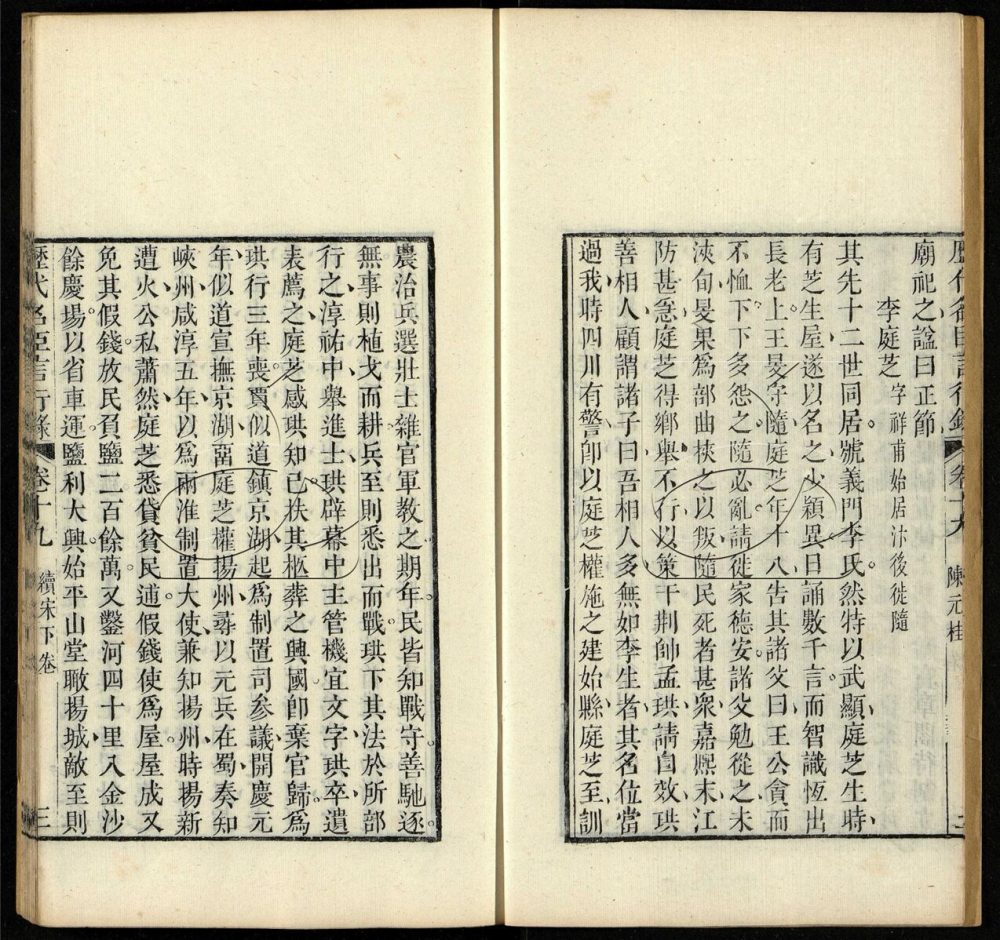 歷代名臣言行錄 卷十九 陳元桂 二
廟祀之諡曰正節
李庭芝 字祥甫始居汴後徙隨
其先十二世同居號義門李氏然特以武顯庭芝生時
有芝生屋遂以名之少穎異日誦數千言而智識恆出
長老上王旻守隨庭芝年十八告其諸父曰王公貪而
不恤下下多怨之隨必亂請徙家德安諸父勉從之未
浹旬旻果爲部曲挾之以叛隨民死者甚衆嘉熙末江
防甚急庭芝得鄉舉不行以策干荆帥孟珙請自效珙
善相人顧謂諸子曰吾相人多無如李生者其名位當
過我時四川有警卽以庭芝權施之建始縣庭芝至訓
農治兵選壯士雜官軍教之期年民皆知戰守善馳逐
無事則植戈而耕兵至則悉出而戰珙下其法於所部
行之淳祐中舉進士珙辟幕中主管機宜文字珙卒遺
表薦之庭芝感珙知己扶其柩葬之興國卽棄官歸爲
珙行三年喪賈似道鎮京湖起爲制置司參議開慶元
年似道宣撫京湖畱庭芝權揚州尋以元兵在蜀奏知
峽州咸淳五年以爲兩淮制置大使兼知揚州時揚新
遭火公私蕭然庭芝悉貸貧民逋假錢使爲屋屋成又
免其假錢放民負鹽二百餘萬又鑿河四十里入金沙
餘慶場以省車運鹽利大興始平山堂瞰揚城敵至則
歷代名臣言行錄 卷十九 續宋下卷 三